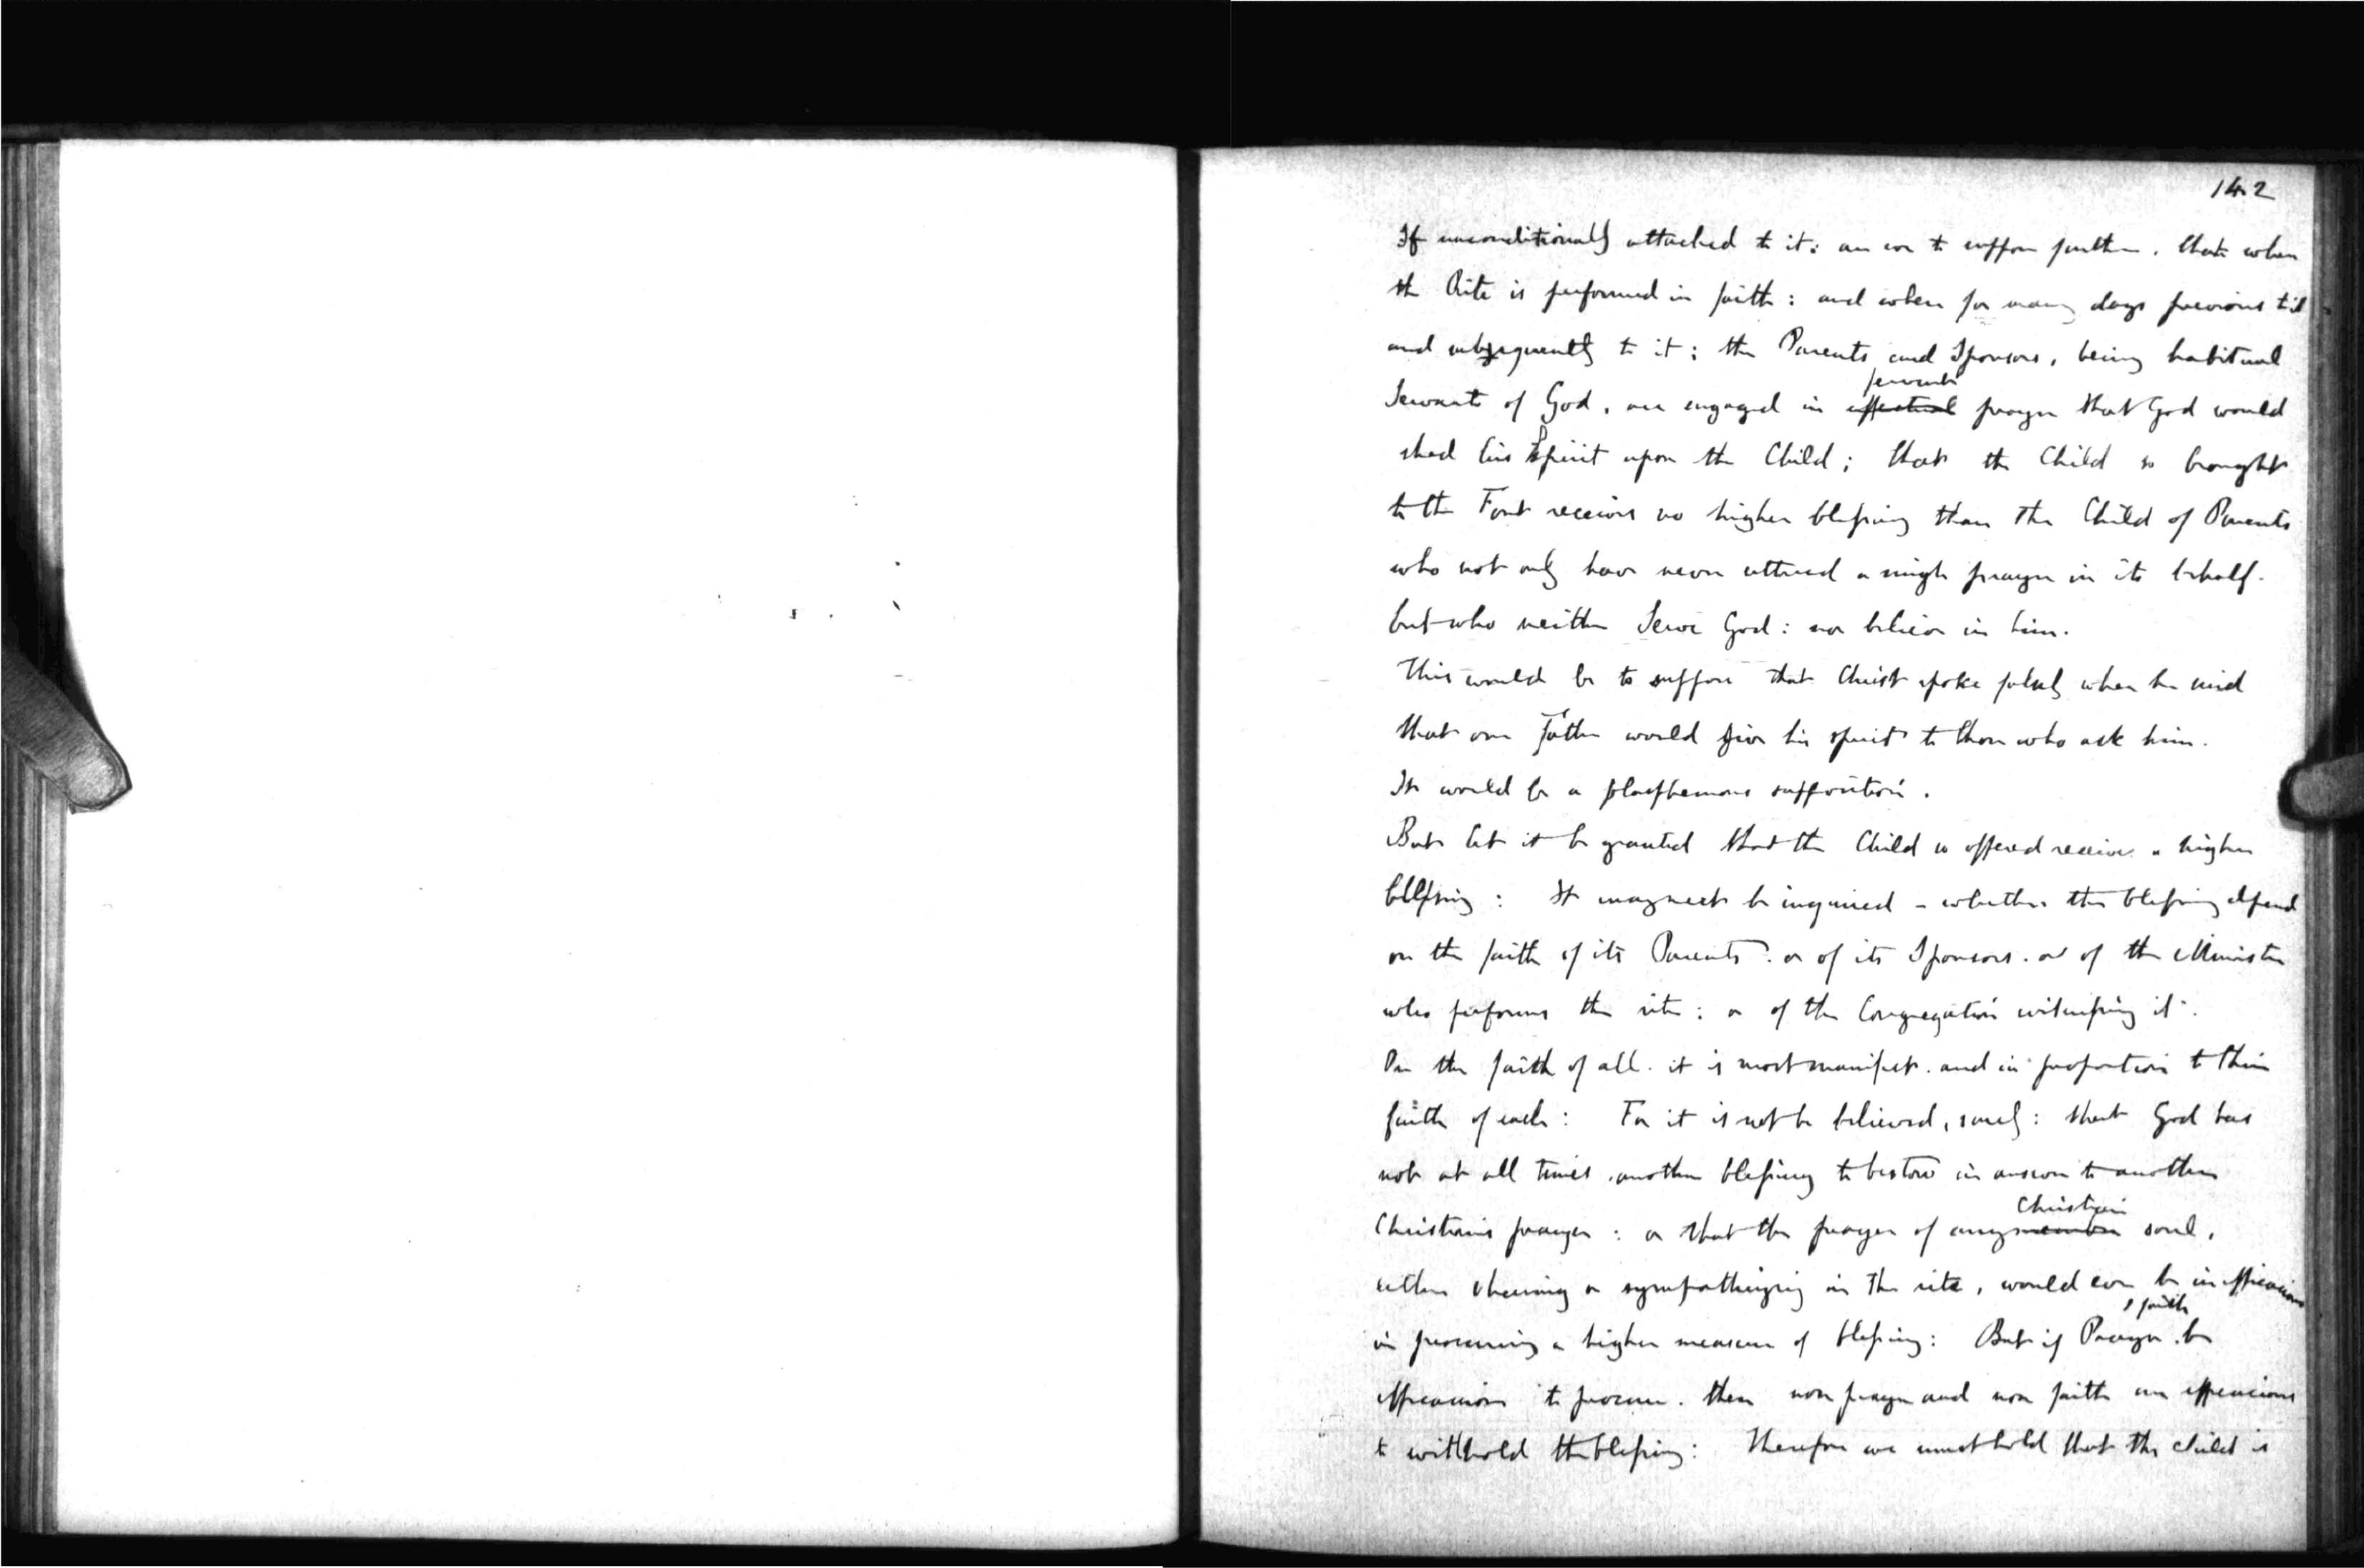 142
If unconditionally attached to it: are we to suppose further. that when
the Rite is performed in faith: and when for many days previous to it
and subsequently to it: the Parents and Sponsors, being habitual
fervent
Servants of God, are engaged in effectual prayer that God would
shed his Spirit upon the Child; that the Child so brought
to the Font receives no higher blessing than the Child of Parents
who not only have never uttered a single prayer in its behalf.
but who neither Serve God: nor believe in him.
This would be to suppose that Christ spoke falsely when he said
that our Father would give his spirit to those who ask him.
It would be a blasphemous supposition.
But let it be granted that the Child so offered receive a higher
blessing: It may next be inquired - whether the blessing depend
on the faith of its Parents. or of its Sponsors. or of the Minister
who performs the rite: or of the Congregation witnessing it.
On the faith of all. it is most manifest. and in proportion to the
faith of each: For it is not be believed, surely: that God has
not at all times another blessing to bestow in answer to another
Christian
Christian's prayer: or that the prayer of any member soul,
either sharing or sympathizing in the rite, would ever be inefficacious
, faith
in procuring a higher measure of blessing: But if Prayer be
efficacious to procure. then non prayer and non faith are efficacious
to withhold the blessing: Therefore we must hold that the child is